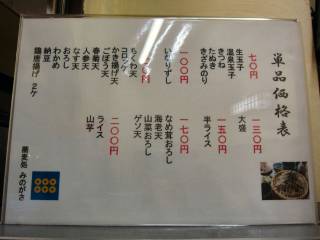 単品価格表
七〇円
生玉子
温泉玉子
きつね
たぬき
きざみのり
一〇〇円
いなりずし
ちくわ天
コロッケ
かき揚げ天
ごぼう天
春菊天
人参天
なす天
おろし
わかめ
納豆
鶏唐揚げ 2ケ
一三〇円
大盛
一五〇円
半ライス
一七〇円
なめ茸おろし
海老天
山菜おろし
ゲソ天
二〇〇円
ライス
山芋
蕎麦処 みのがさ